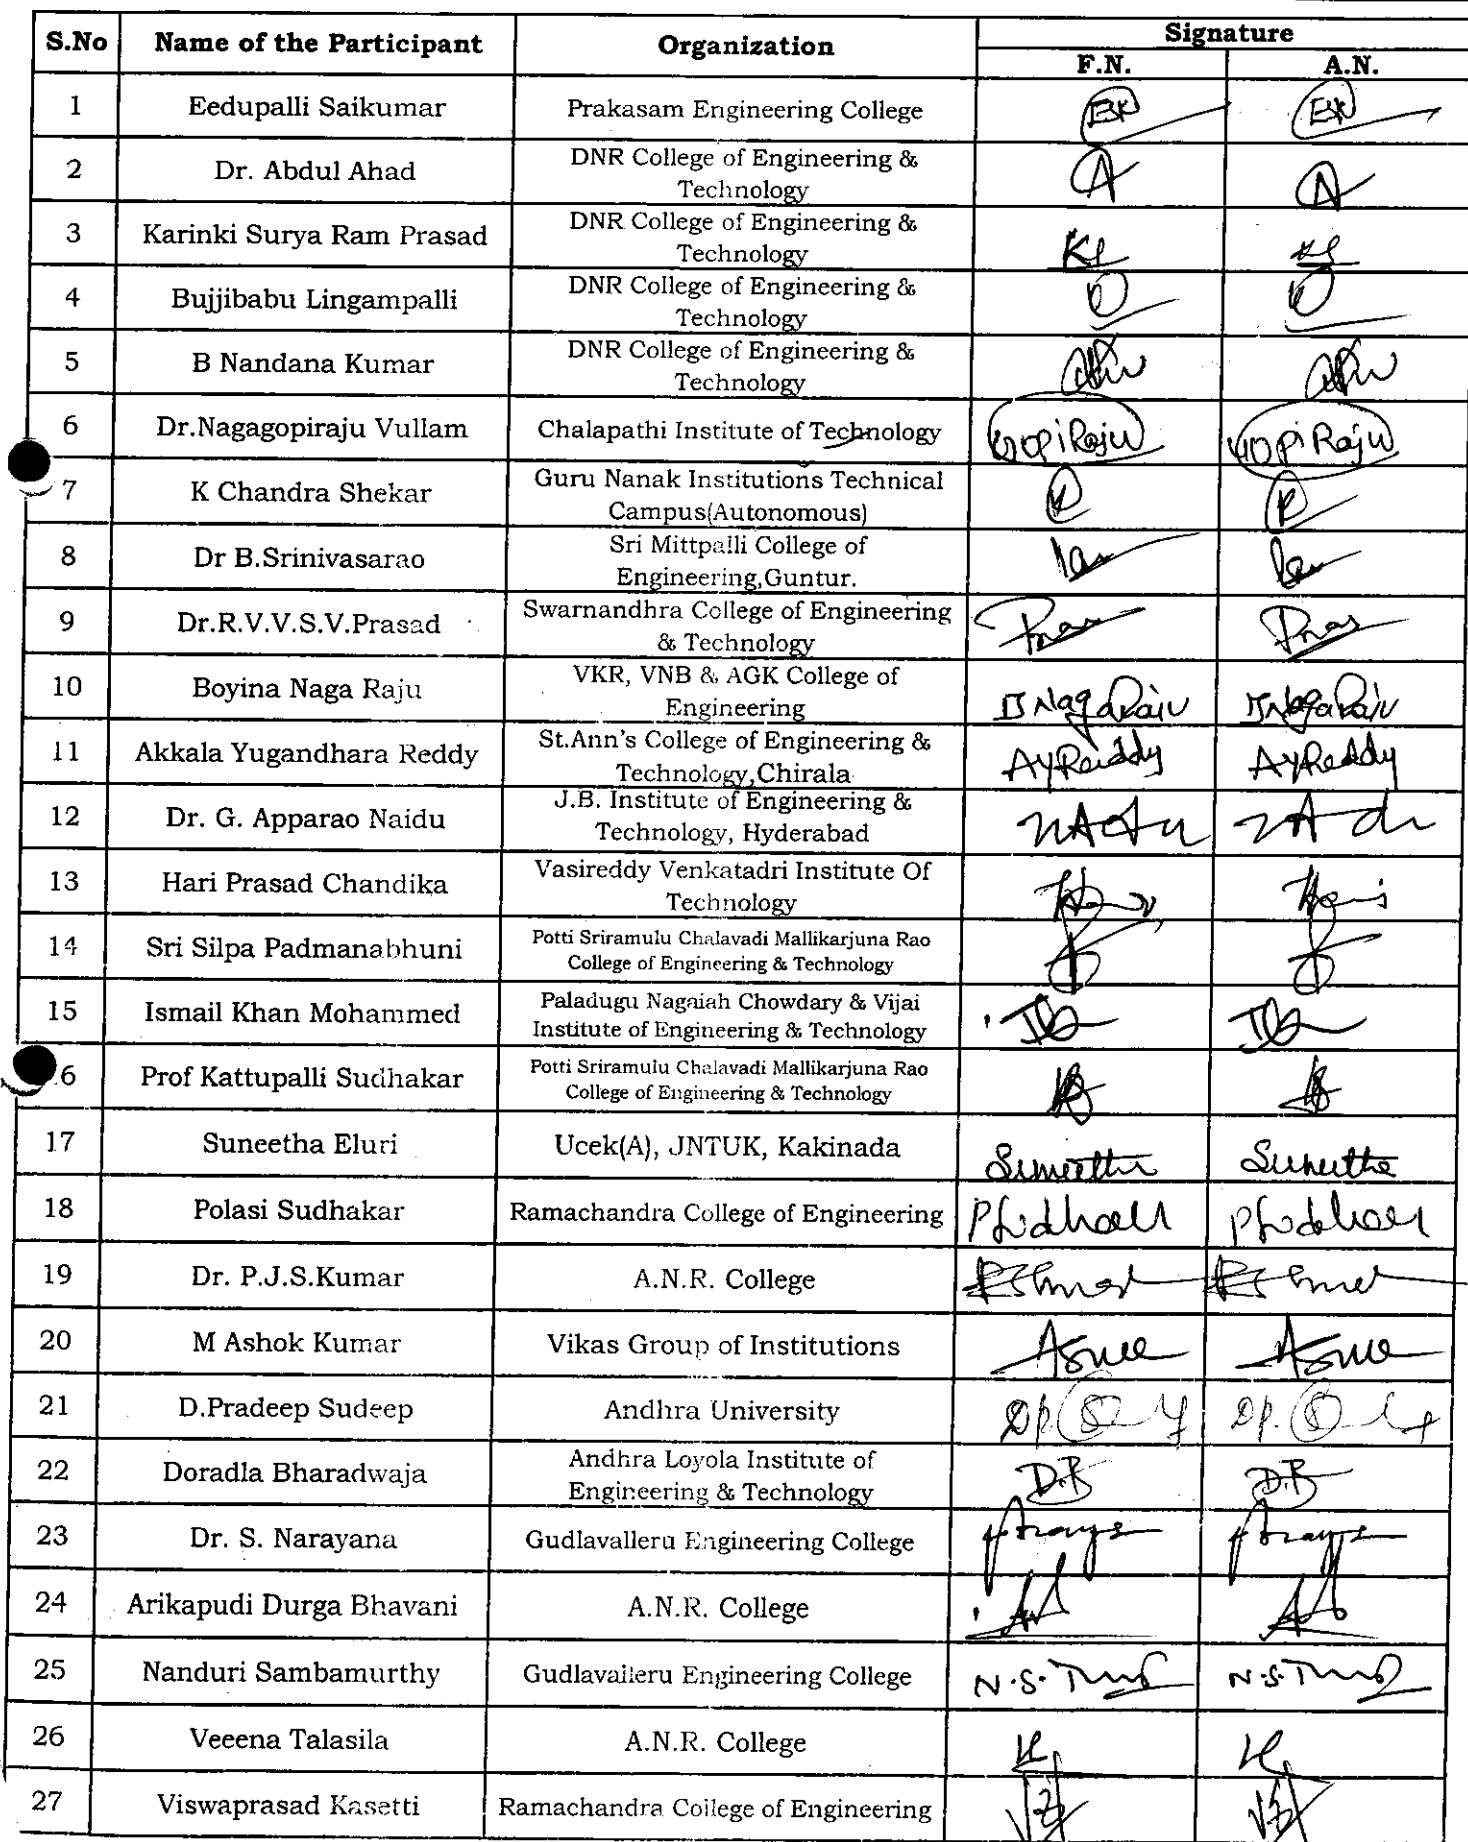 S.No Name of the Participant Organization Signature
F.N. A.N.
1 Eedupalli Saikumar Prakasam Engineering College
2 Dr. Abdul Ahad DNR College of Engineering &
Technology
A A
3 Karinki Surya Ram Prasad DNR College of Engineering &
Technology
4 Bujjibabu Lingampalli DNR College of Engineering &
Technology
5 B Nandana Kumar DNR College of Engineering &
Technology
6 Dr.Nagagopiraju Vullam Chalapathi Institute of Technology GopiRaju GopiRaju
7 K Chandra Shekar Guru Nanak Institutions Technical
Campus(Autonomous)
8 Dr B.Srinivasarao Sri Mittpalli College of
Engineering,Guntur.
9 Dr.R.V.V.S.V.Prasad Swarnandhra College of Engineering
& Technology
10 Boyina Naga Raju VKR, VNB & AGK College of
Engineering
B NagaRaju B NagaRaju
11 Akkala Yugandhara Reddy St.Ann's College of Engineering &
Technology,Chirala
AYReddy AYReddy
12 Dr. G. Apparao Naidu J.B. Institute of Engineering &
Technology, Hyderabad
13 Hari Prasad Chandika Vasireddy Venkatadri Institute Of
Technology
14 Sri Silpa Padmanabhuni Potti Sriramulu Chalavadi Mallikarjuna Rao
College of Engineering & Technology
15 Ismail Khan Mohammed Paladugu Nagaiah Chowdary & Vijai
Institute of Engineering & Technology
6 Prof Kattupalli Sudhakar Potti Sriramulu Chalavadi Mallikarjuna Rao
College of Engineering & Technology
17 Suneetha Eluri Ucek(A), JNTUK, Kakinada Suneetha Suneetha
18 Polasi Sudhakar Ramachandra College of Engineering
19 Dr. P.J.S.Kumar A.N.R. College
20 M Ashok Kumar Vikas Group of Institutions
21 D.Pradeep Sudeep Andhra University
22 Doradla Bharadwaja Andhra Loyola Institute of
Engineering & Technology
D.B D.B
23 Dr. S. Narayana Gudlavalleru Engineering College
24 Arikapudi Durga Bhavani A.N.R. College
25 Nanduri Sambamurthy Gudlavalleru Engineering College
26 Veeena Talasila A.N.R. College
27 Viswaprasad Kasetti Ramachandra College of Engineering